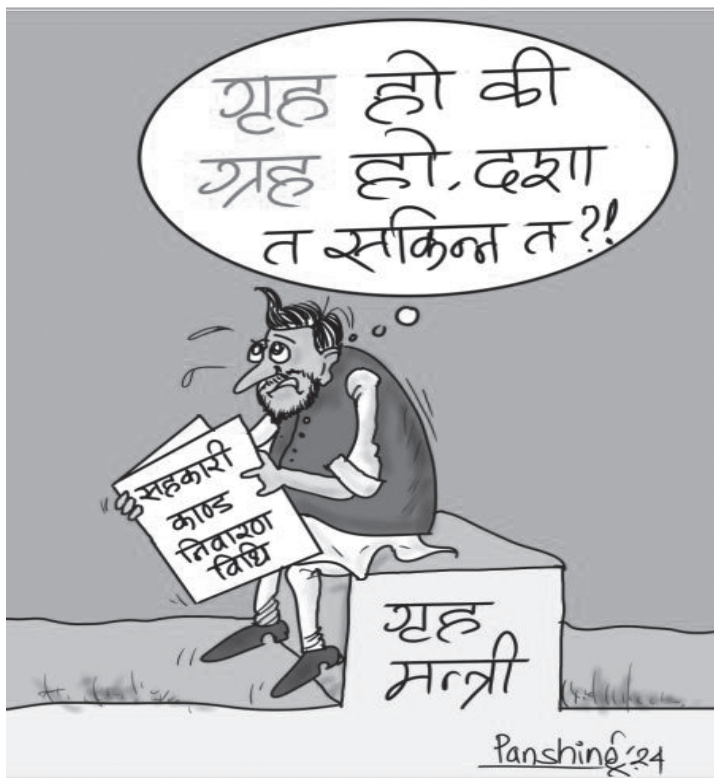 गृह हो की
ग्रह हो, दशा
त सकिन्न त ?!
सहकारी
काण्ड
निवारण
विधि
गृह
मन्त्री
Panshing '24